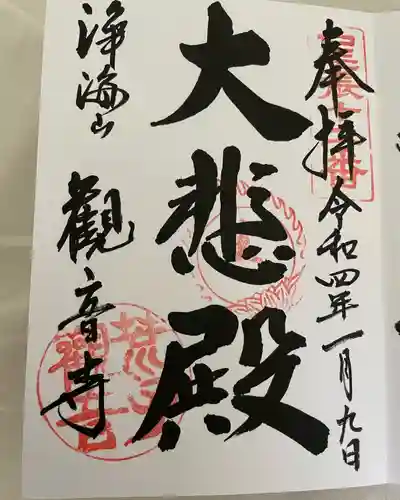 奉拝
令和四年一月九日
大悲殿
浄海山
觀音寺